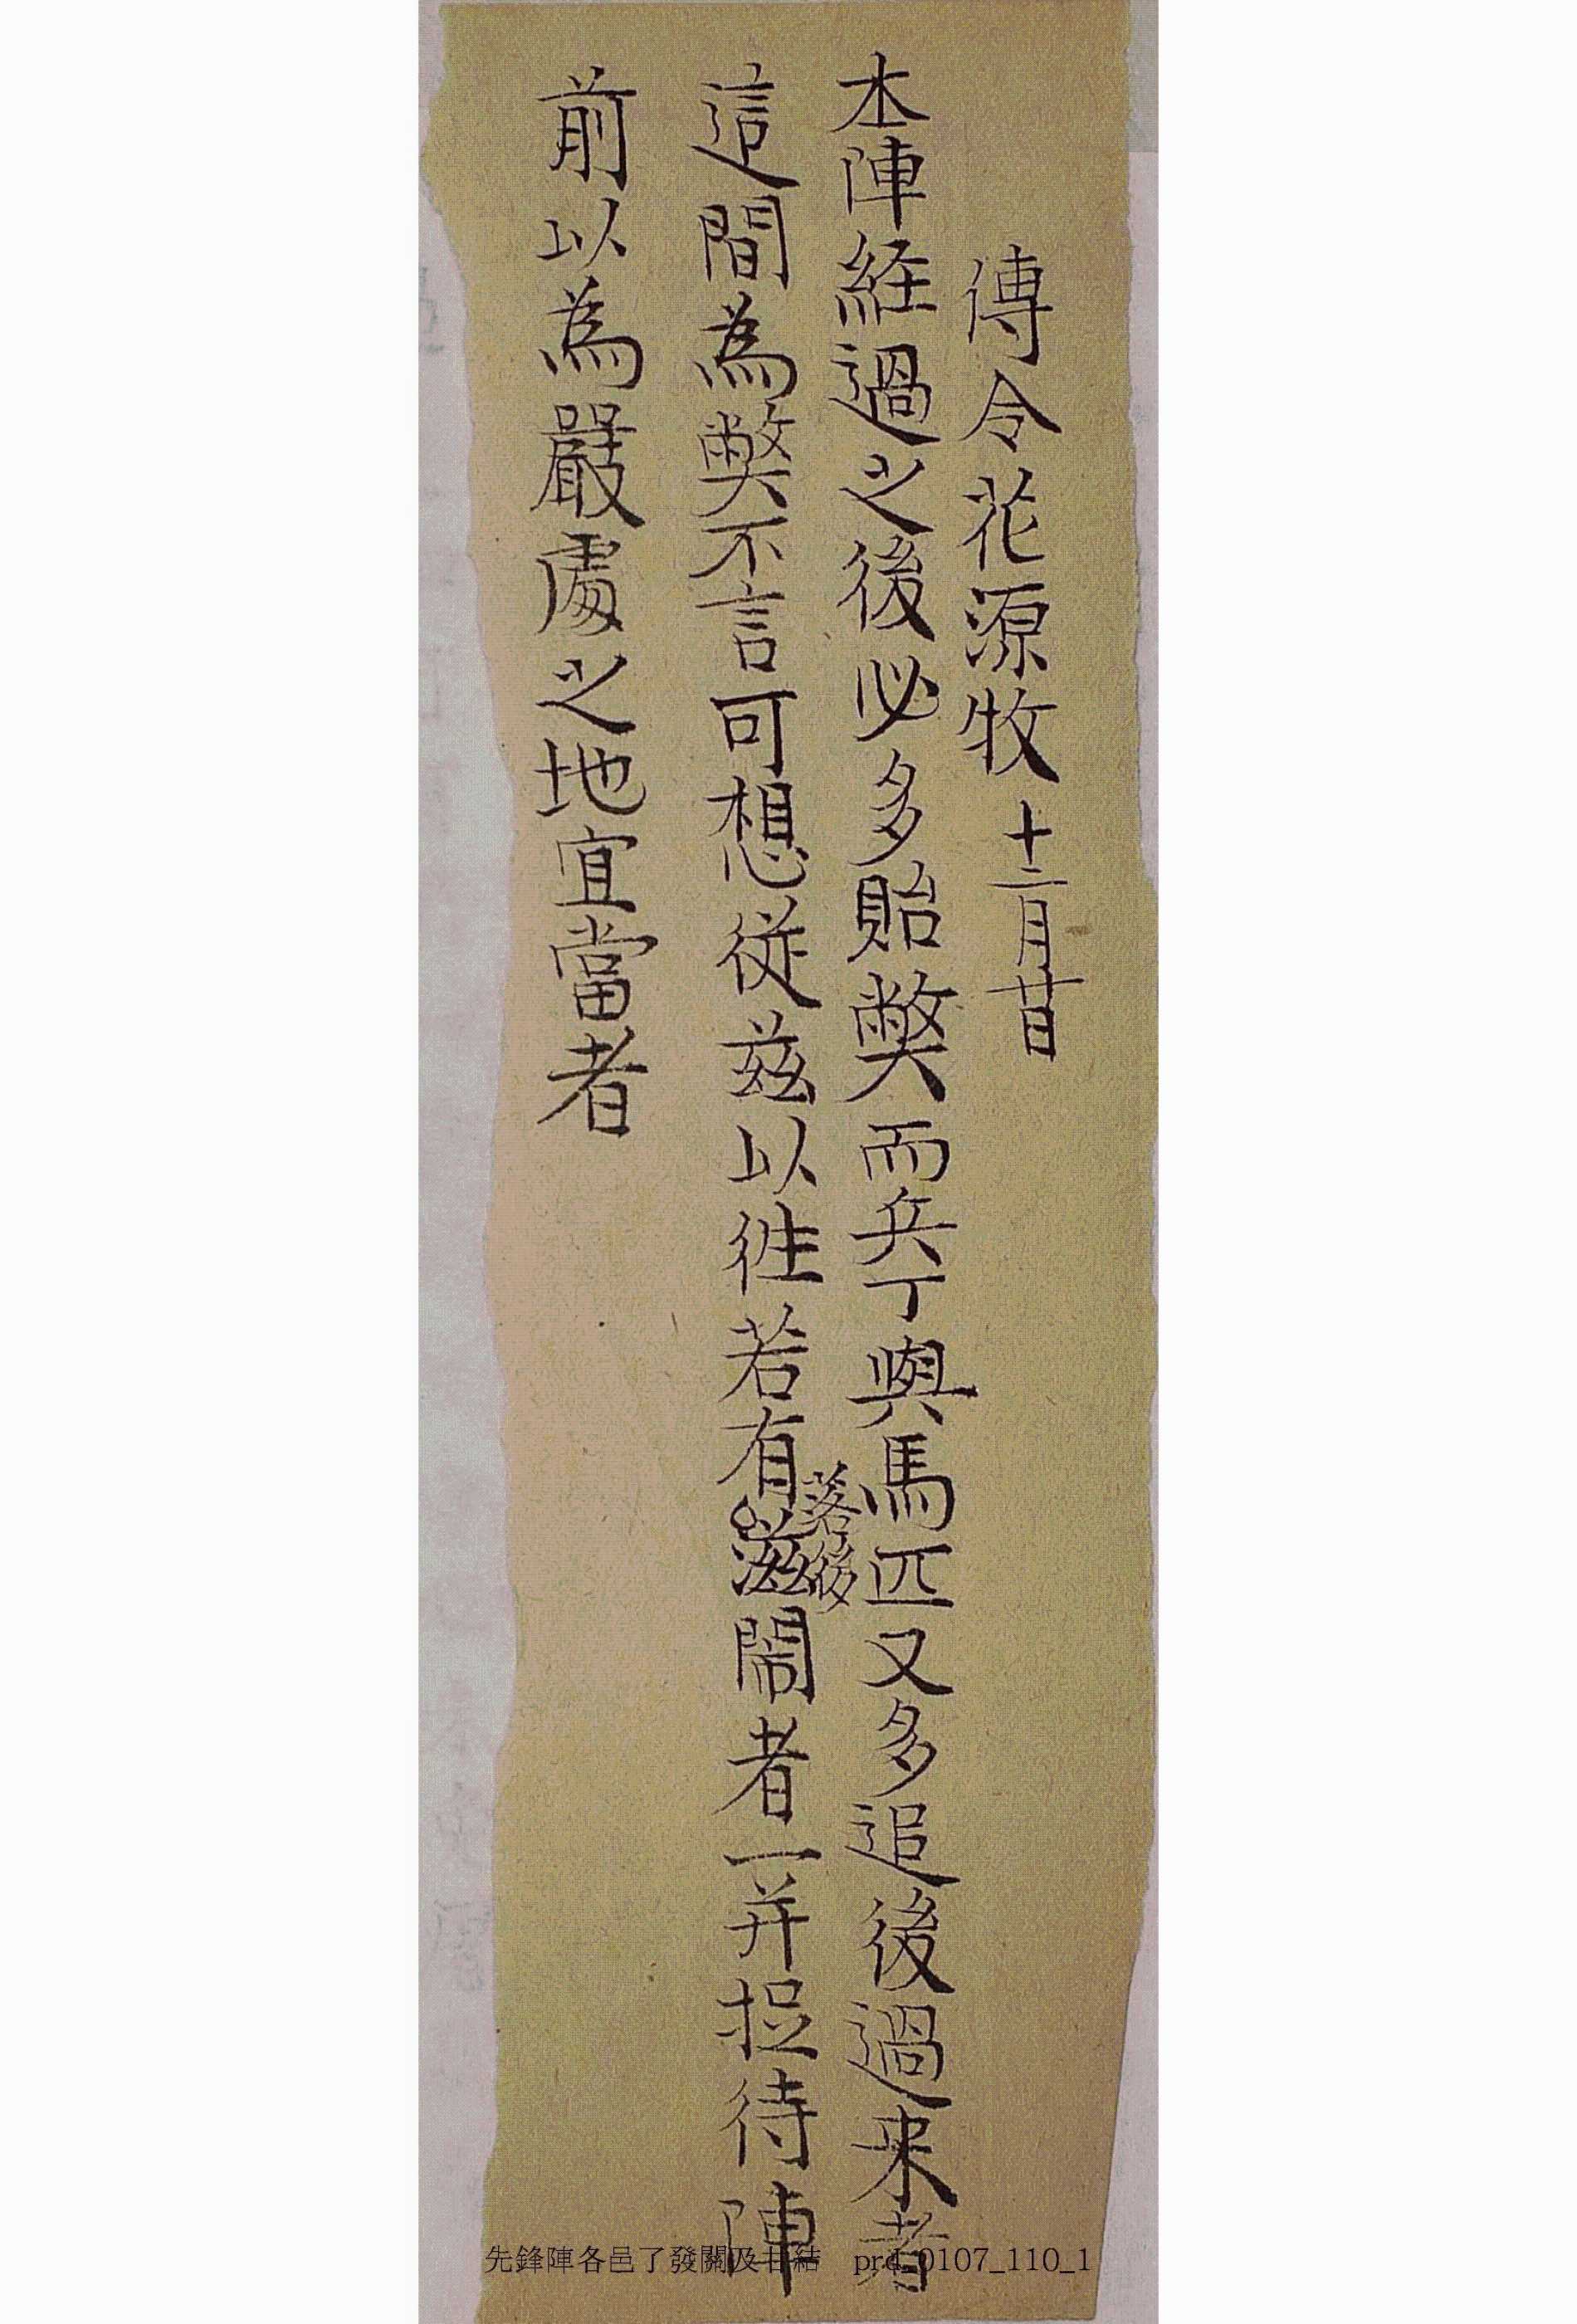 傳令花源牧 十二月廿日
本陣経過之後必多貽獘而兵丁與馬匹又多追後過来者
這間為獘不言可想從玆以徃若有落後滋鬧者一并捉待陣
前以為嚴處之地宜當者
先鋒陣各邑了發關及甘結 prd_0107_110_1